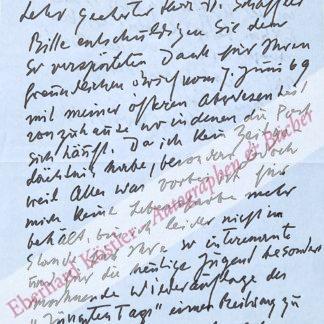 Sehr geehrter Herr Dr. Schöffler
Bitte entschuldigen Sie den
so verspäteten Dank für Ihren
freundlichen Brief vom 7. Juni 69
mit meiner öfteren Abwesenheit
von zuhause, wo indessen die Post
sich häuft. Da ich kein Zeitge-
dächtnis habe, besonders
weil Alles was vorbei ist für
mich keine mehr
behält, bin ich leider nicht im
Stande für Ihre so interessante
und für die heutige Jugend besonders
Wiederauflage des
"Jüngsten Tags" einen Beitrag zu
Eberhard Köstler - Autographen & Bücher